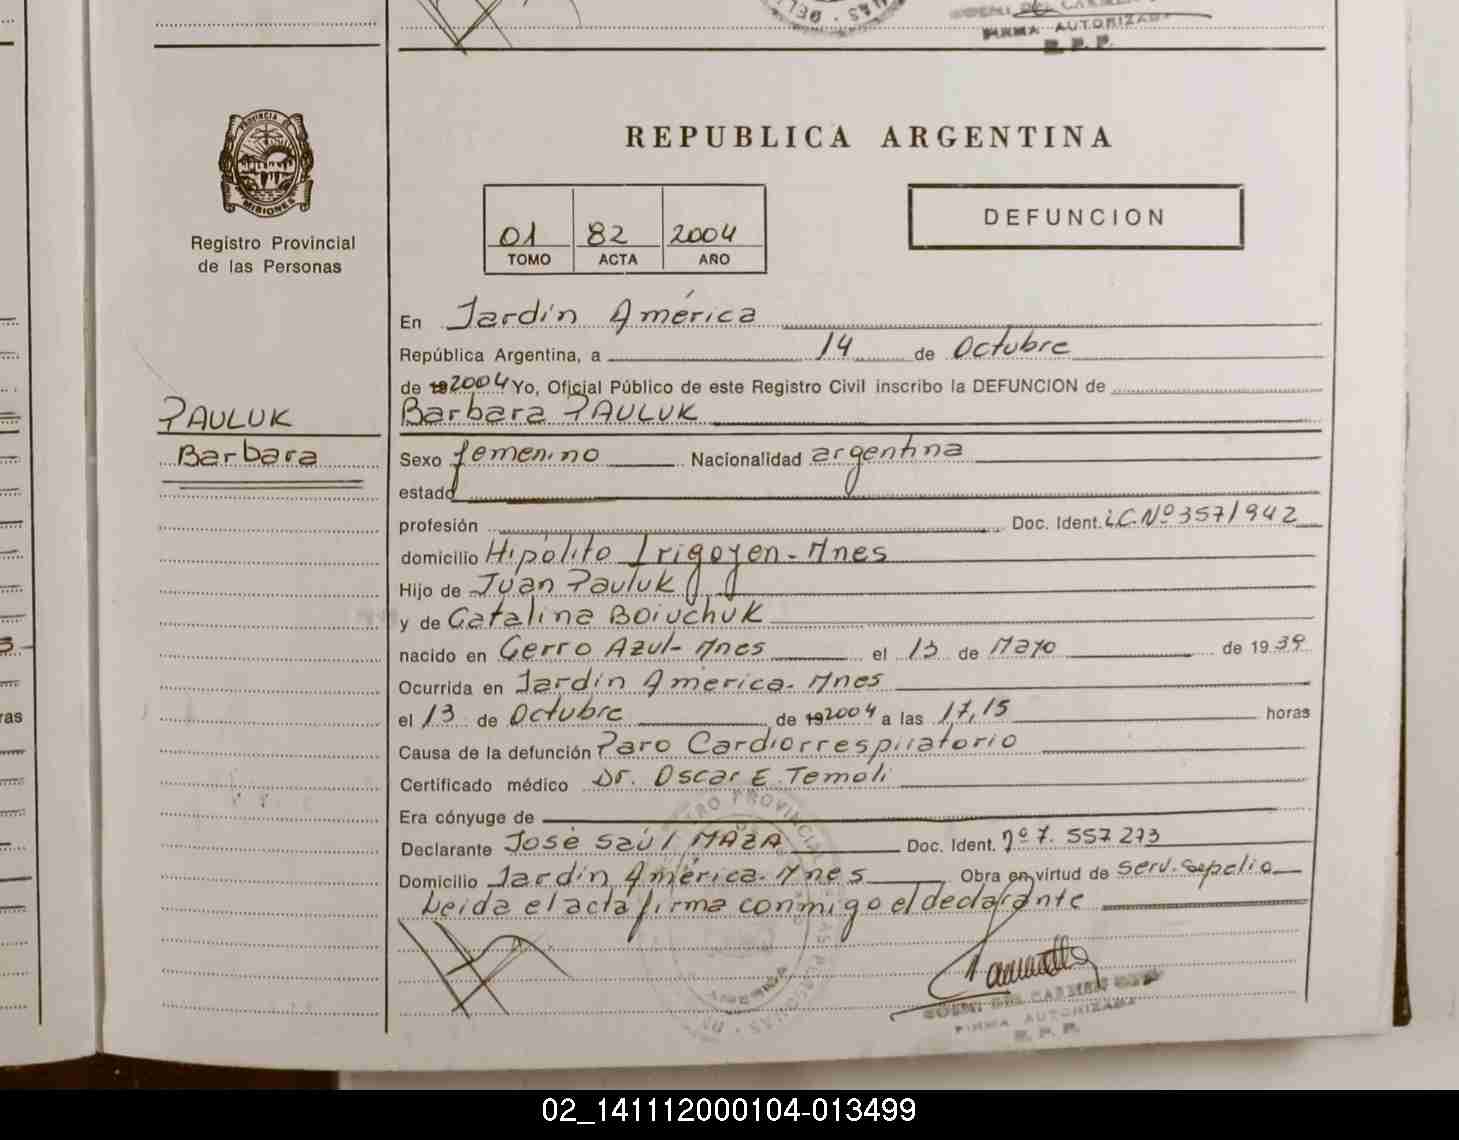 FIRMA AUTORIZADA
R. P. P.
PROVINCIA DE
MISIONES
Registro Provincial
de las Personas
REPUBLICA ARGENTINA
01 82 2004
TOMO ACTA AÑO
DEFUNCION
En Jardín América
República Argentina, a 14 de Octubre
de 19 2004 Yo, Oficial Público de este Registro Civil inscribo la DEFUNCION de
PAULUK
Barbara
Barbara PAULUK
Sexo femenino Nacionalidad argentina
estado
profesión Doc. Ident. i.C. Nº 3571942
domicilio Hipólito Irigoyen - Mnes
Hijo de Juan Pauluk
y de Catalina Boiuchuk
nacido en Cerro Azul - Mnes el 13 de Mayo de 1939
Ocurrida en Jardín América - Mnes
el 13 de Octubre de 19 2004 a las 17,15 horas
Causa de la defunción Paro Cardiorrespiratorio
Certificado médico Dr. Oscar E. Temoli
Era cónyuge de
Declarante José Saúl MAZA Doc. Ident. nº 7.557273
Domicilio Jardín América - Mnes Obra en virtud de serv. sepelio
Leida el acta firma conmigo el declarante
FIRMA AUTORIZADA
R. P. P.
02_141112000104-013499